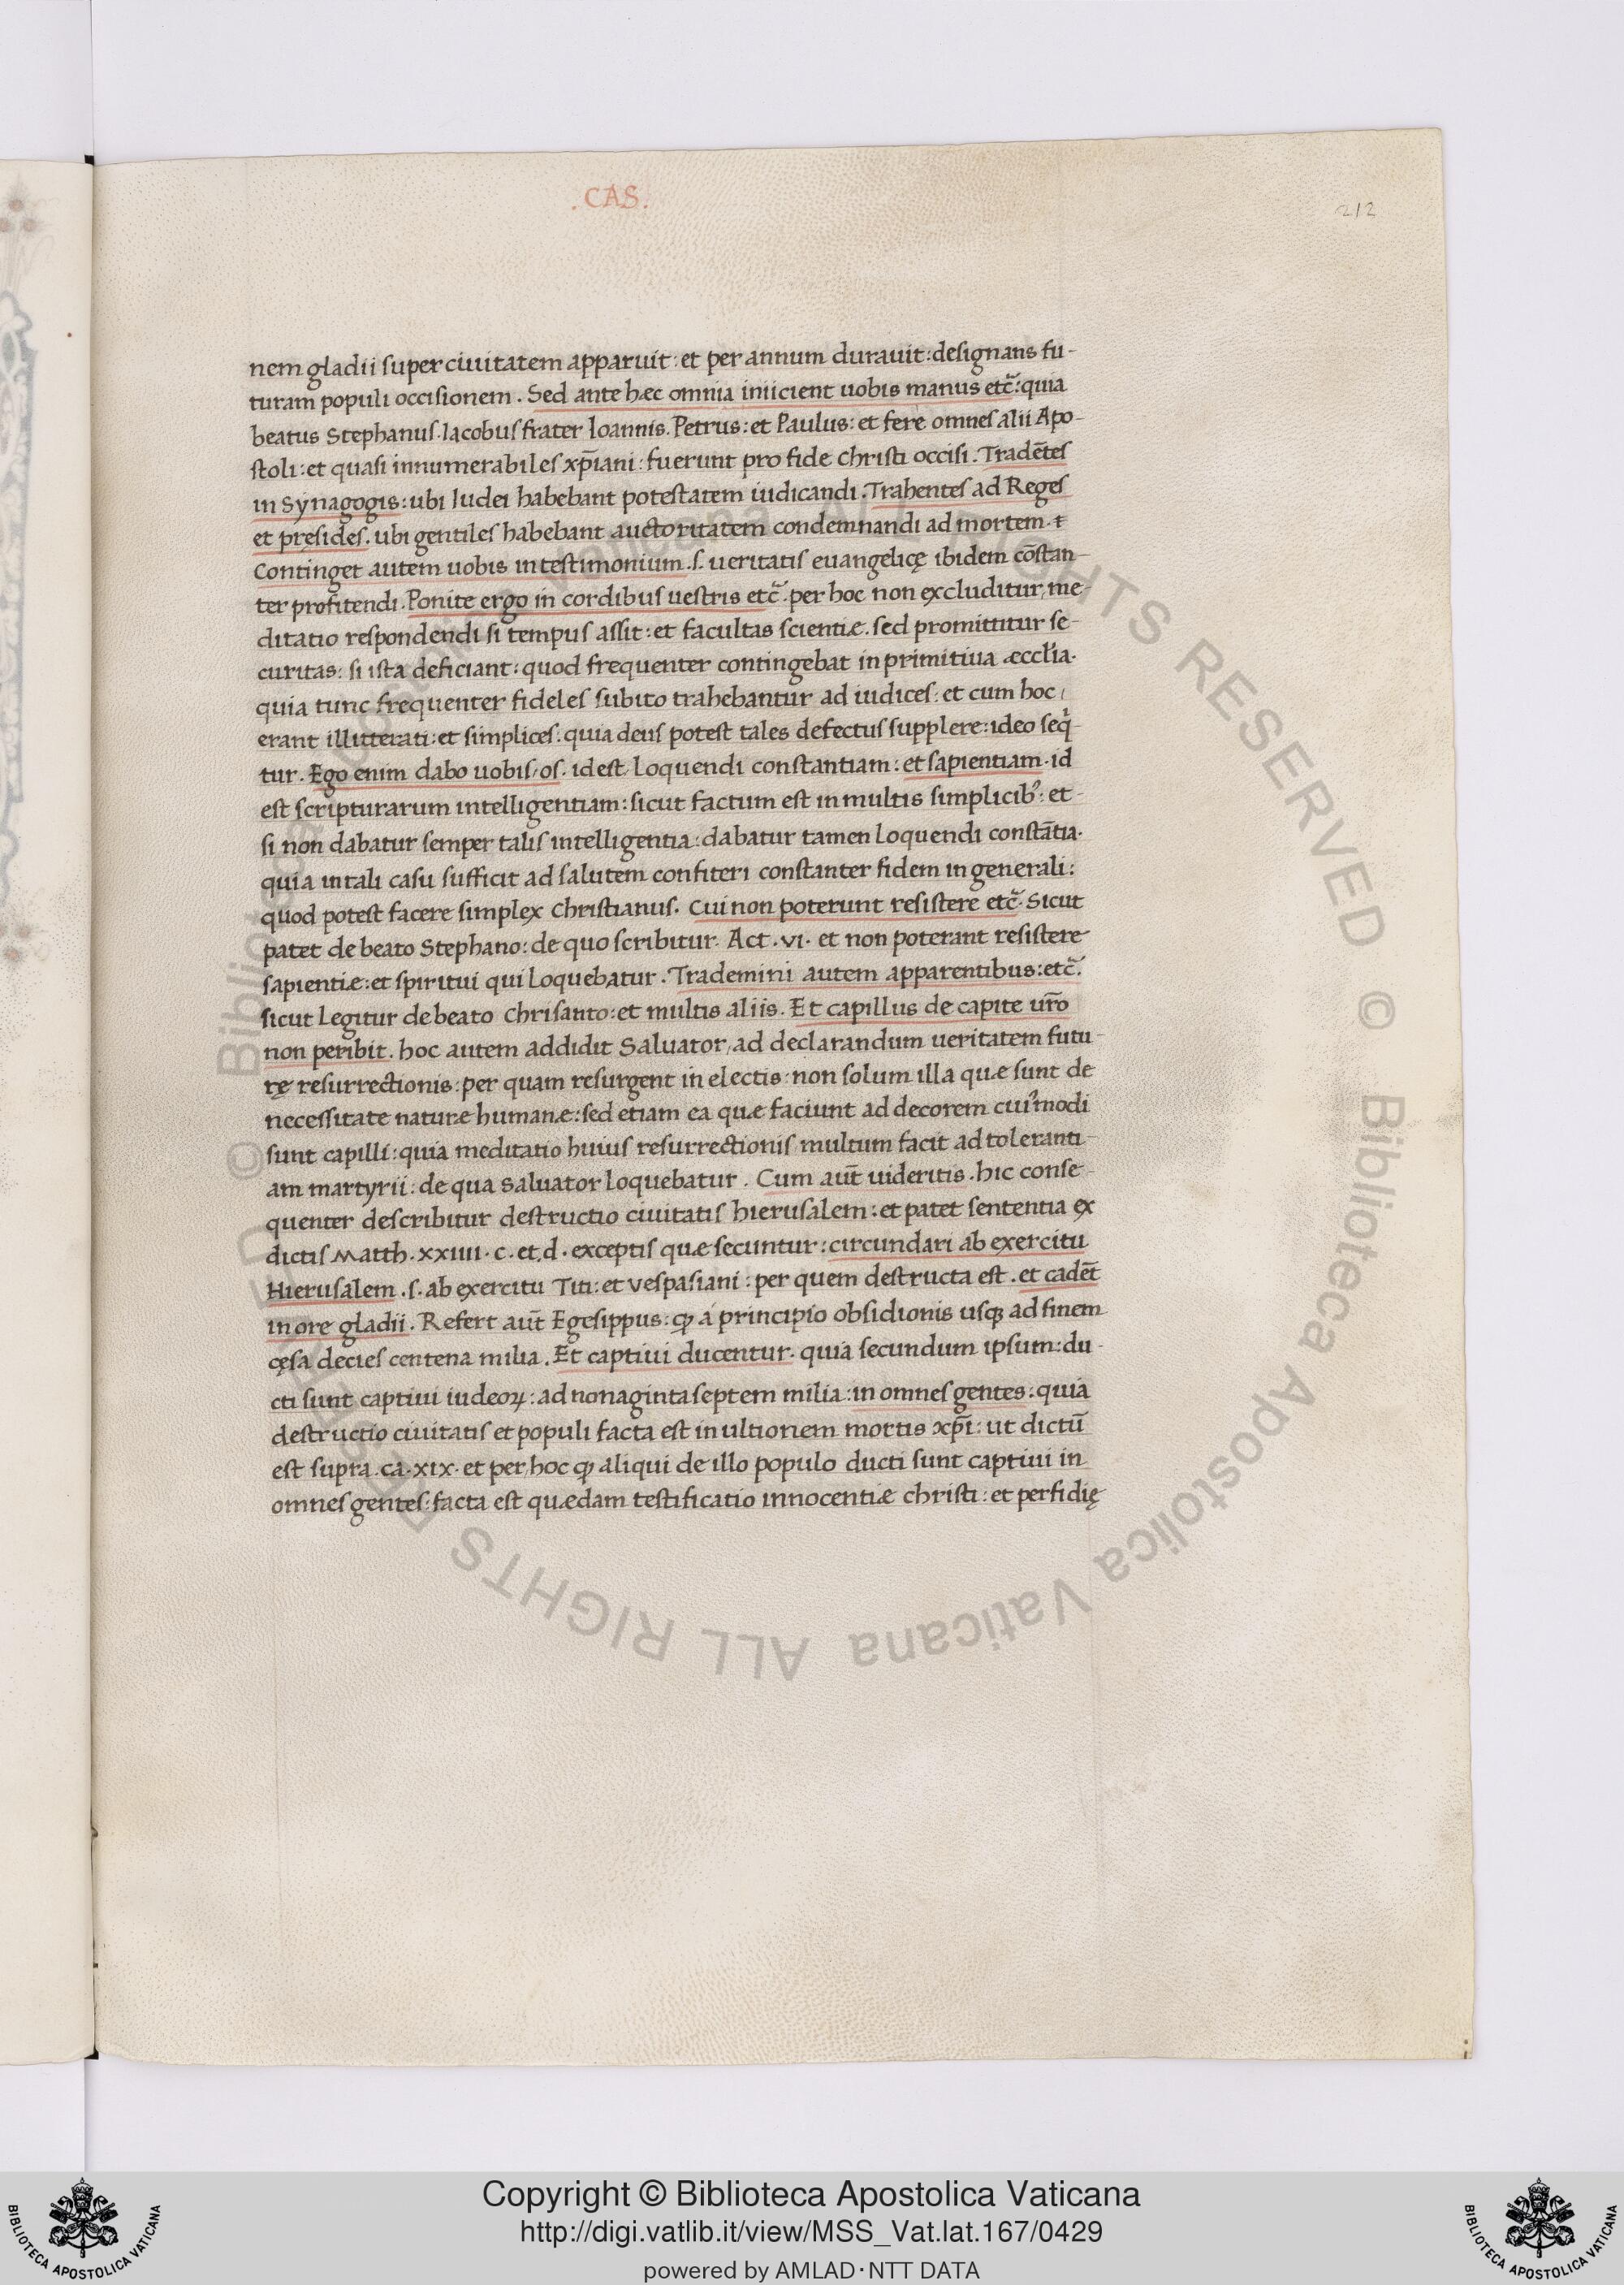 .CAS.
212
nem gladii super ciuitatem apparuit: et per annum durauit: designans fu-
turam populi occisionem. Sed ante hæc omnia iniicient uobis manus etc̃: quia
beatus Stephanus. Iacobus frater Ioannis. Petrus: et Paulus: et fere omnes alii Apo-
stoli: et quasi innumerabiles xp̃iani: fuerunt pro fide christi occisi. Tradẽtes
in Synagogis: ubi Iudei habebant potestatem iudicandi. Trahentes ad Reges
et pręsides. ubi gentiles habebant auctoritatem condemnandi ad mortem.
Continget autem uobis in testimonium .s. ueritatis euangelicę ibidem cõstan-
ter profitendi. Ponite ergo in cordibus uestris etc̃. per hoc non excluditur, me-
ditatio respondendi si tempus assit: et facultas scientiæ. sed promittitur se-
curitas: si ista deficiant: quod frequenter contingebat in primitiua æccl'ia.
quia tunc frequenter fideles subito trahebantur ad iudices: et cum hoc,
erant illitterati: et simplices: quia deus potest tales defectus supplere: ideo seq̃-
tur. Ego enim dabo uobis, os. idest, loquendi constantiam: et sapientiam. id
est scripturarum intelligentiam: sicut factum est in multis simplicib9: et-
si non dabatur semper talis intelligentia: dabatur tamen loquendi constãtia.
quia in tali casu sufficit ad salutem confiteri constanter fidem in generali:
quod potest facere simplex Christianus. Cui non poterunt resistere etc̃. Sicut
patet de beato Stephano: de quo scribitur. Act. VI. et non poterant resistere
sapientiæ: et spiritui qui loquebatur. Trademini autem apparentibus: etc̃.
sicut legitur de beato Chrisanto: et multis aliis. Et capillus de capite ur̃o
non peribit. hoc autem addidit Saluator, ad declarandum ueritatem futu-
rę resurrectionis: per quam resurgent in electis: non solum illa quæ sunt de
necessitate naturæ humanæ: sed etiam ea quæ faciunt ad decorem cui9modi
sunt capilli: quia meditatio huius resurrectionis multum facit ad toleranti-
am martyrii: de qua Saluator loquebatur. Cum aut̃ uideritis. hic conse-
quenter describitur destructio ciuitatis hierusalem: et patet sententia ex
dictis Matth. XXIIII. c. et. d. exceptis quæ secuntur: circundari ab exercitu
Hierusalem .s. ab exercitu Titi: et Vespasiani: per quem destructa est. et cadẽt
in ore gladii. Refert aut̃ Egesippus: ꝙ a principio obsidionis usqꝫ ad finem
cęsa decies centena milia. Et captiui ducentur. quia secundum ipsum: du-
cti sunt captiui iudeoꝝ: ad nonaginta septem milia: in omnes gentes: quia
destructio ciuitatis et populi facta est in ultionem mortis xp̃i: ut dictũ
est supra. ca. XIX. et per hoc ꝙ aliqui de illo populo ducti sunt captiui in
omnes gentes: facta est quædam testificatio innocentiæ christi: et perfidię
© Biblioteca Apostolica Vaticana ALL RIGHTS RESERVED © Biblioteca Apostolica Vaticana ALL RIGHTS RESERVED
Copyright © Biblioteca Apostolica Vaticana
http://digi.vatlib.it/view/MSS_Vat.lat.167/0429
powered by AMLAD·NTT DATA
BIBLIOTECA APOSTOLICA VATICANA
BIBLIOTECA APOSTOLICA VATICANA